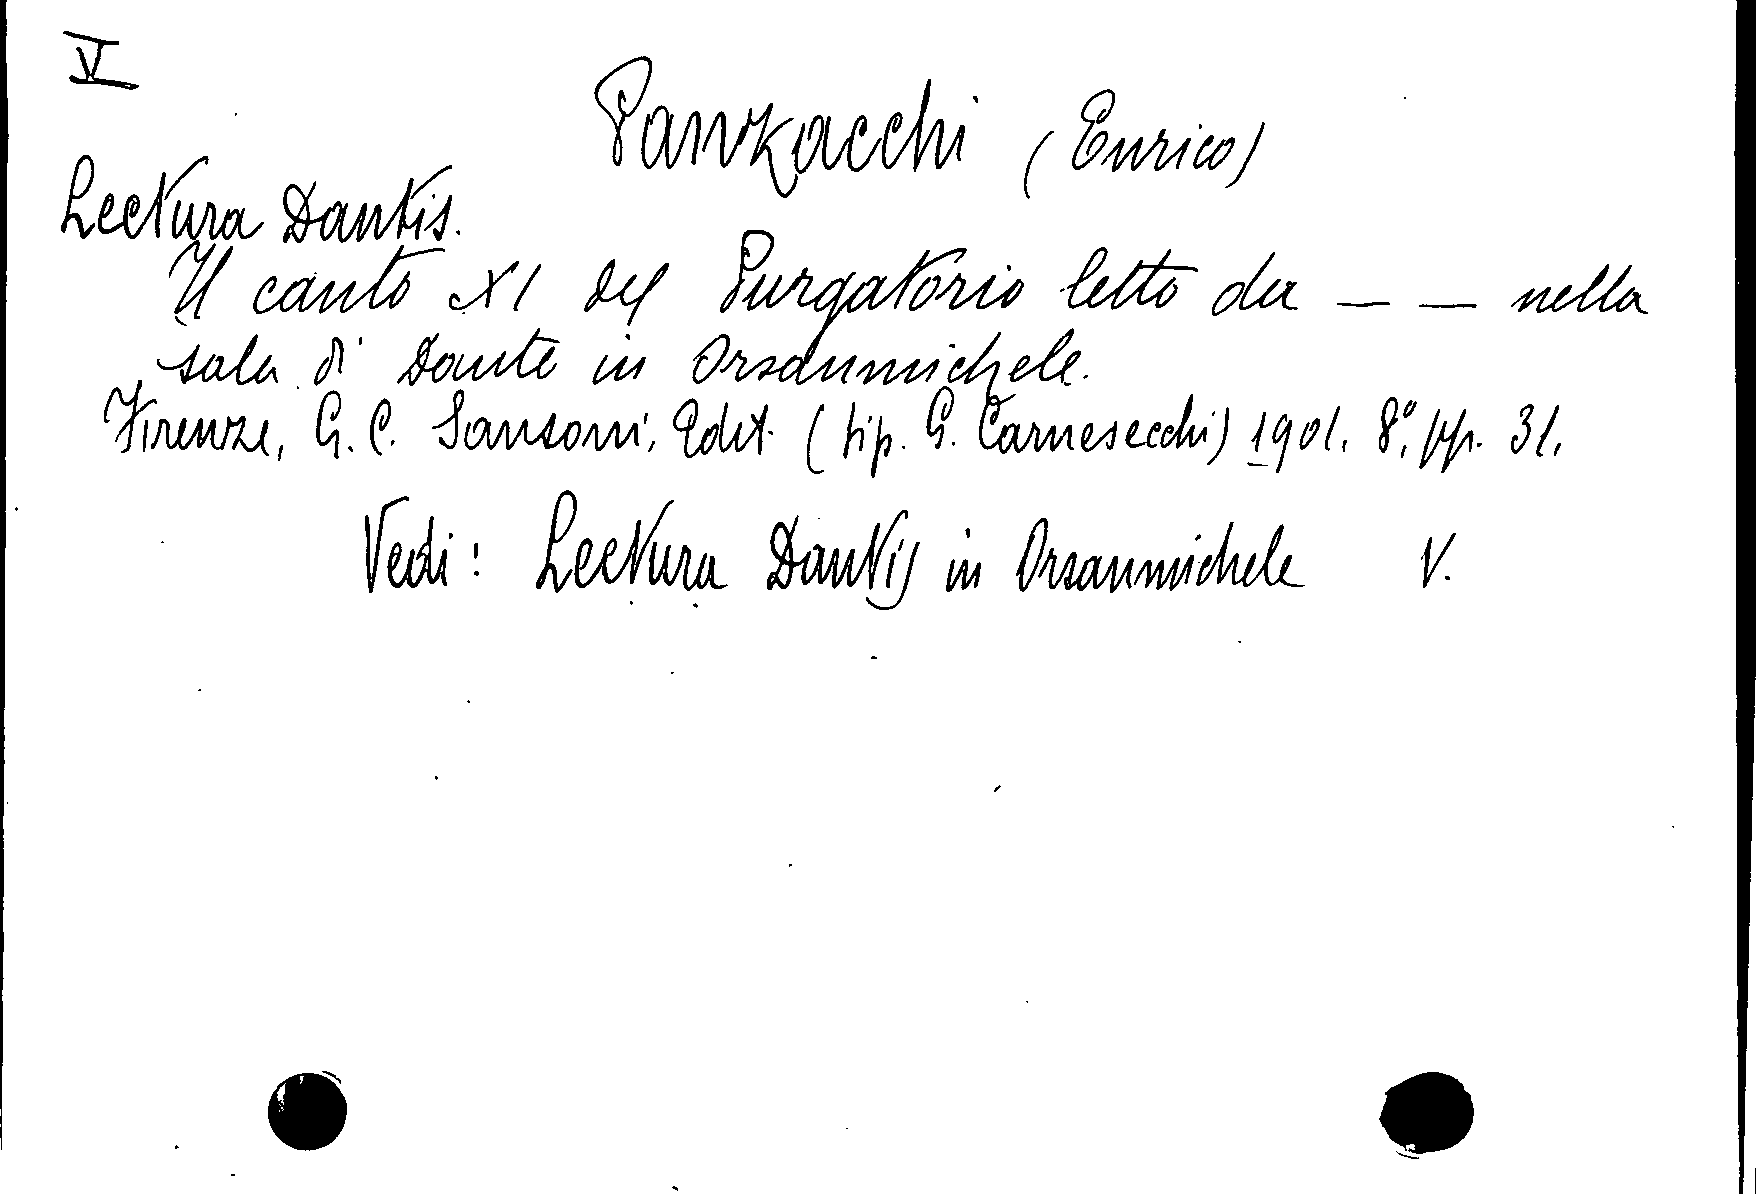 V
Panzacchi (Enrico)
Lectura Dantis.
Il canto XI del Purgatorio letto da — — nella
sala di Dante in Orsanmichele.
Firenze, G. C. Sansoni, Edit. (tip. G. Carnesecchi) 1901. 8º, pp. 31.
Vedi: Lectura Dantis in Orsanmichele V.